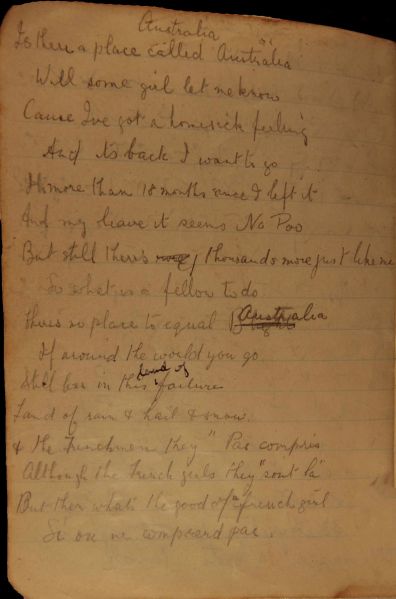 Australia
Is there a place called Australia
Will some girl let me know
Cause I've got a homesick feeling
And its back I want to go
Its more than 18 months since I left it
And my leave it seems No Poo
But still there's thousands more just like me
So what is a fellow to do
There's no place to equal Australia
If around the would you go
Still her in this land of failures
Land of rain & hail & snow.
& the Frenchmen they "Pas compris
Although the French girls they "sont là"
But then whats the good of a french girl
Si on ne comprend pas.